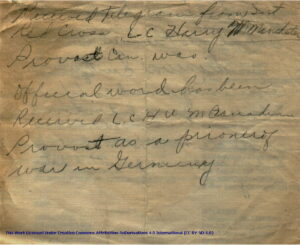 Received telegram from Int
Red Cross L-C Harry M
Provost Can. was.
official word has been
Received L C H V M
Provost as a prioner of
war in Germany
This Work Licensed Under Creative Commons Attribution-NoDerivatives 4.0 International (CC BY-ND 4.0)